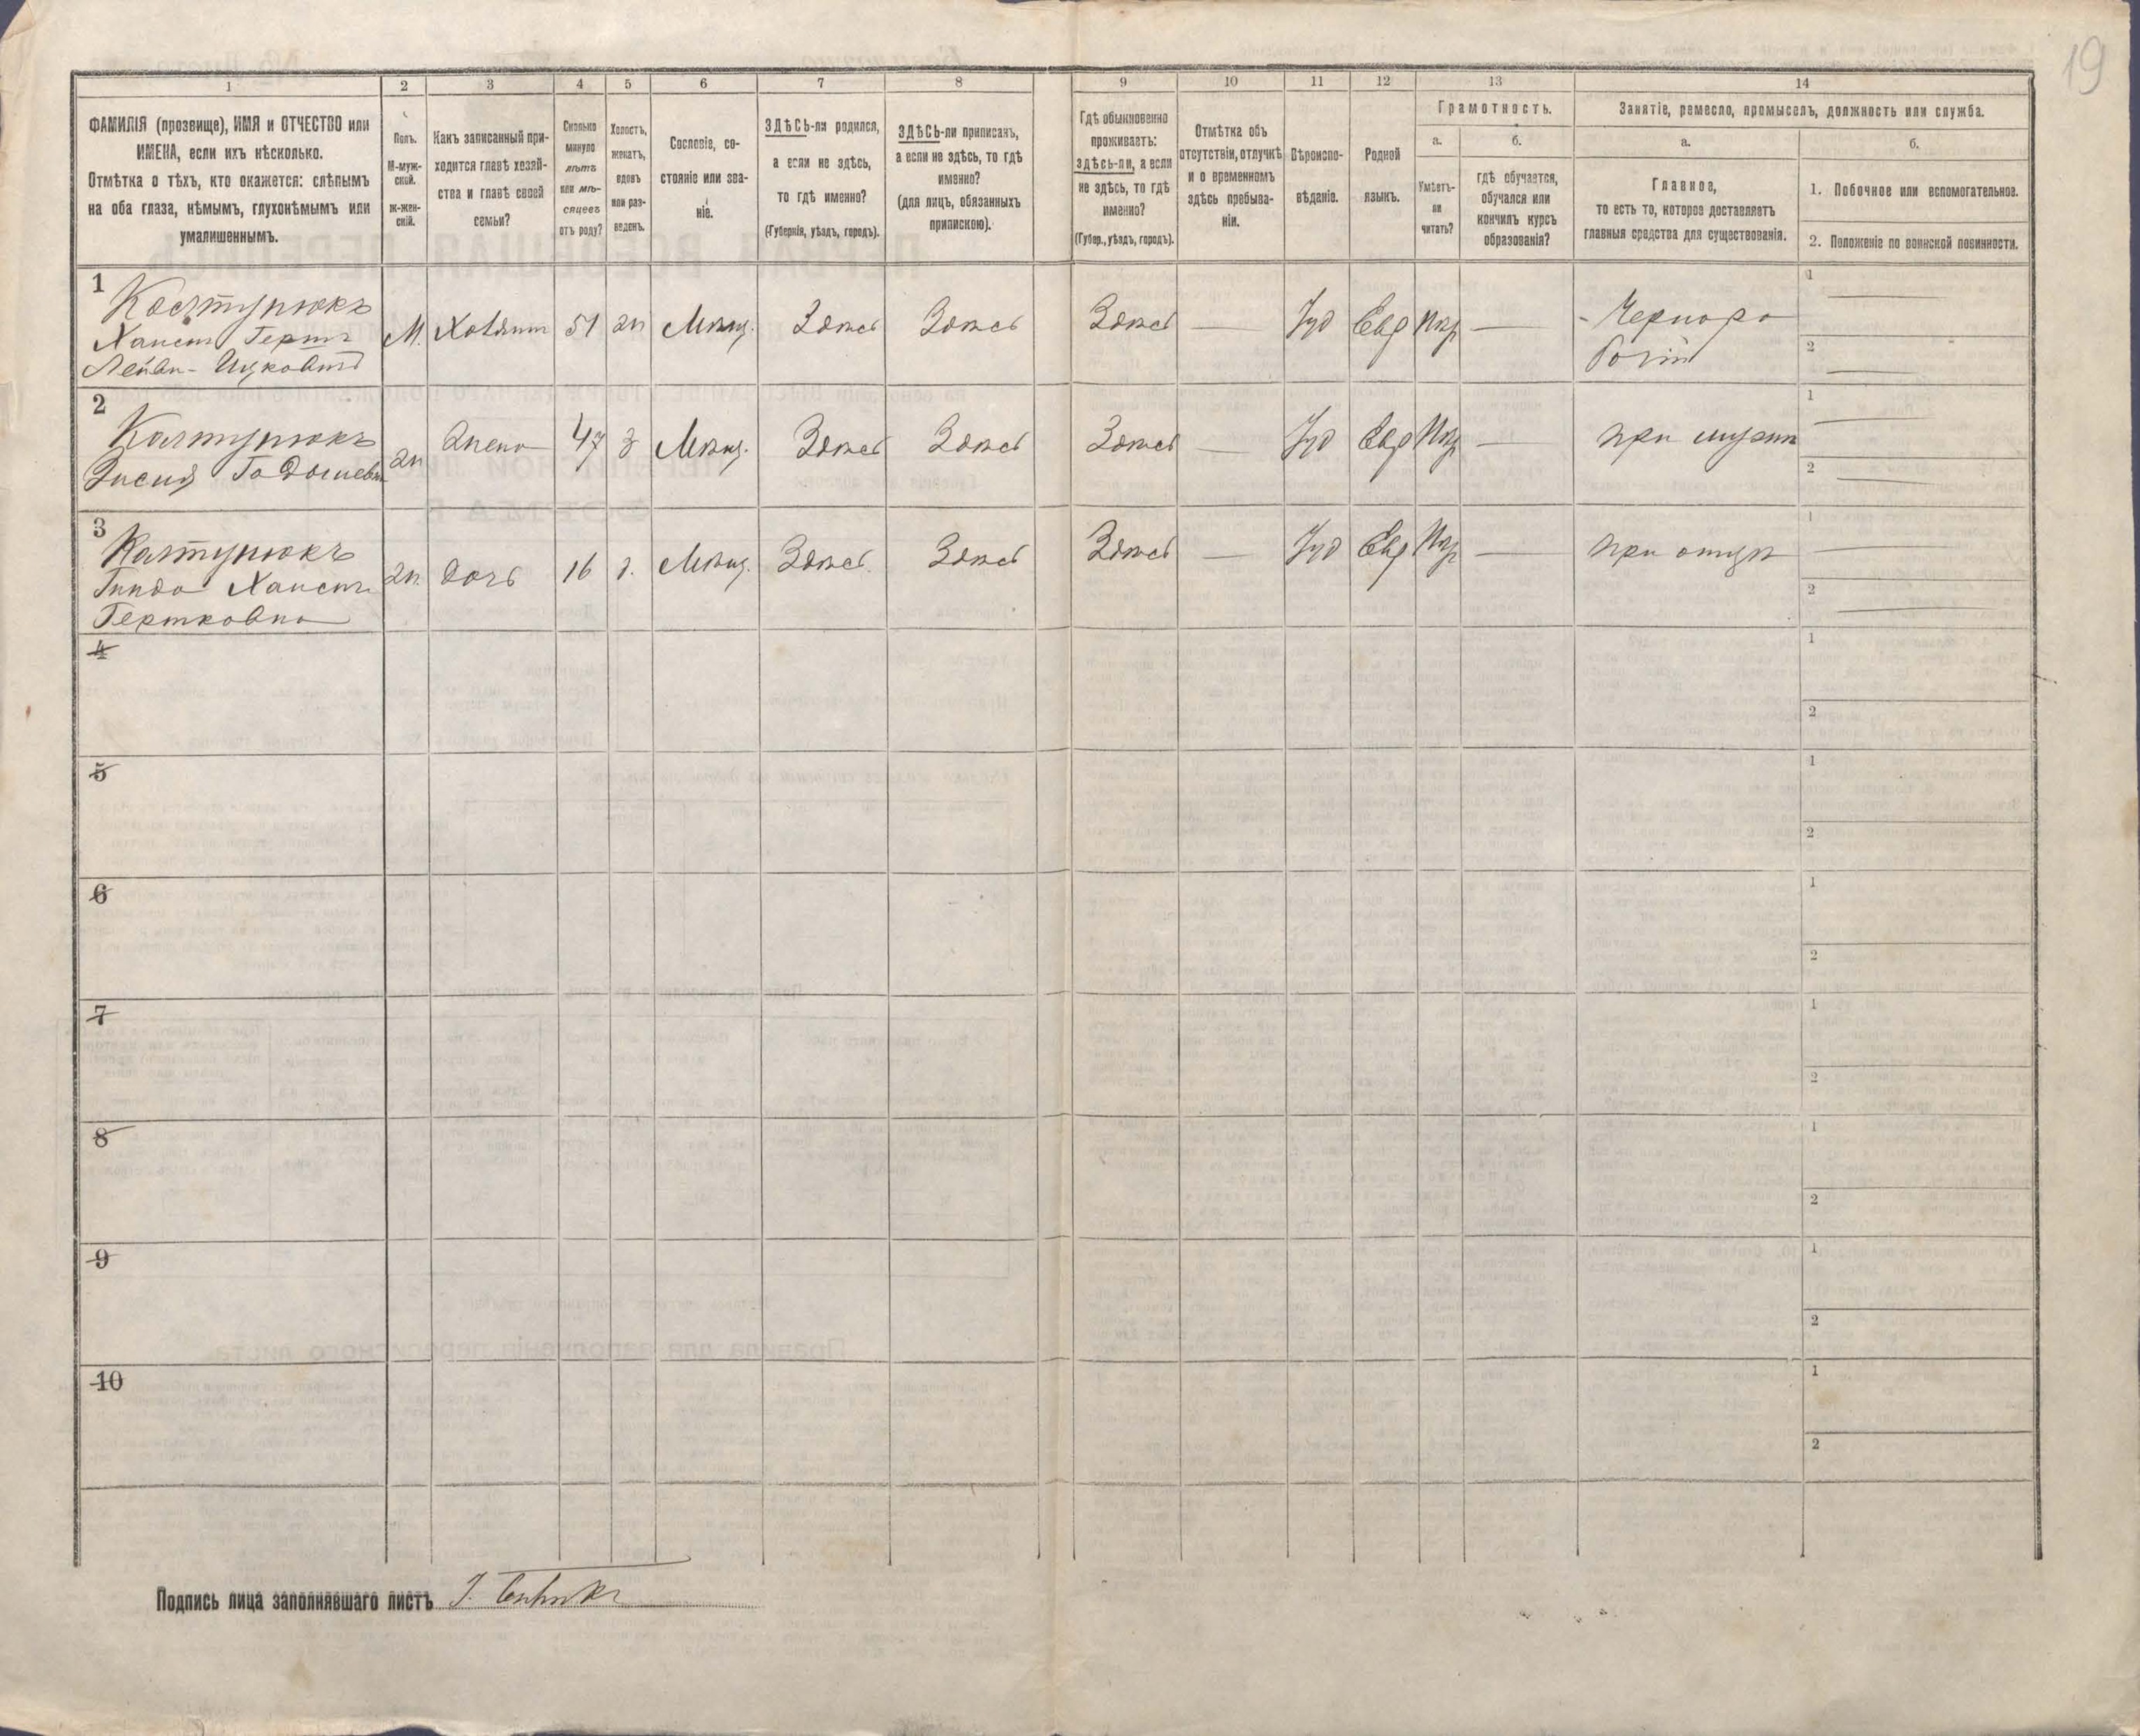 19
1 2 3 4 5 6 7 8 9 10 11 12 13 14
ФАМИЛІЯ (прозвище), ИМЯ и ОТЧЕСТВО или
ИМЕНА, если ихъ нѣсколько.
Отмѣтка о тѣхъ, кто окажется: слѣпымъ
на оба глаза, нѣмымъ, глухонѣмымъ или
умалишеннымъ.
Полъ.
М-муж-
ской.
ж-жен-
скій.
Какъ записанный при-
ходится главѣ хозяй-
ства и главѣ своей
семьи?
Сколько
минуло
лѣтъ
или мѣ-
сяцевъ
отъ роду?
Холостъ,
женатъ,
вдовъ
или раз-
веденъ.
Сословіе, со-
стояніе или зва-
ніе.
ЗДѢСЬ-ли родился,
а если не здѣсь,
то гдѣ именно?
(Губернія, уѣздъ, городъ).
ЗДѢСЬ-ли приписанъ,
а если не здѣсь, то гдѣ
именно?
(для лицъ, обязанныхъ
припискою).
Гдѣ обыкновенно
проживаетъ:
здѣсь-ли, а если
не здѣсь, то гдѣ
именно?
(Губер., уѣздъ, городъ).
Отмѣтка объ
отсутствіи, отлучкѣ
и о временномъ
здѣсь пребыва-
ніи.
Вѣроиспо-
вѣданіе.
Родной
языкъ.
Грамотность.
а. б.
Умѣетъ-
ли
читать?
гдѣ обучается,
обучался или
кончилъ курсъ
образованія?
Занятіе, ремесло, промыселъ, должность или служба.
а. б.
Главное,
то есть то, которое доставляетъ
главныя средства для существованія.
1. Побочное или вспомогательное.
2. Положеніе по воинской повинности.
1
М. Хозяинъ 51 ж Мѣщ. Здѣсь Здѣсь Здѣсь — Іуд Евр — Черноро
бочій
1
2
2
ж Жена 47 з Мѣщ. Здѣсь Здѣсь Здѣсь — Іуд Евр — при мужѣ
1
2
3
ж. дочь 16 д. Мѣщ. Здѣсь Здѣсь Здѣсь — Іуд Евр — при отцѣ
1
2
4
1
2
5
1
2
6
1
2
7
1
2
8
1
2
9
1
2
10
1
2
Подпись лица заполнявшаго листъ